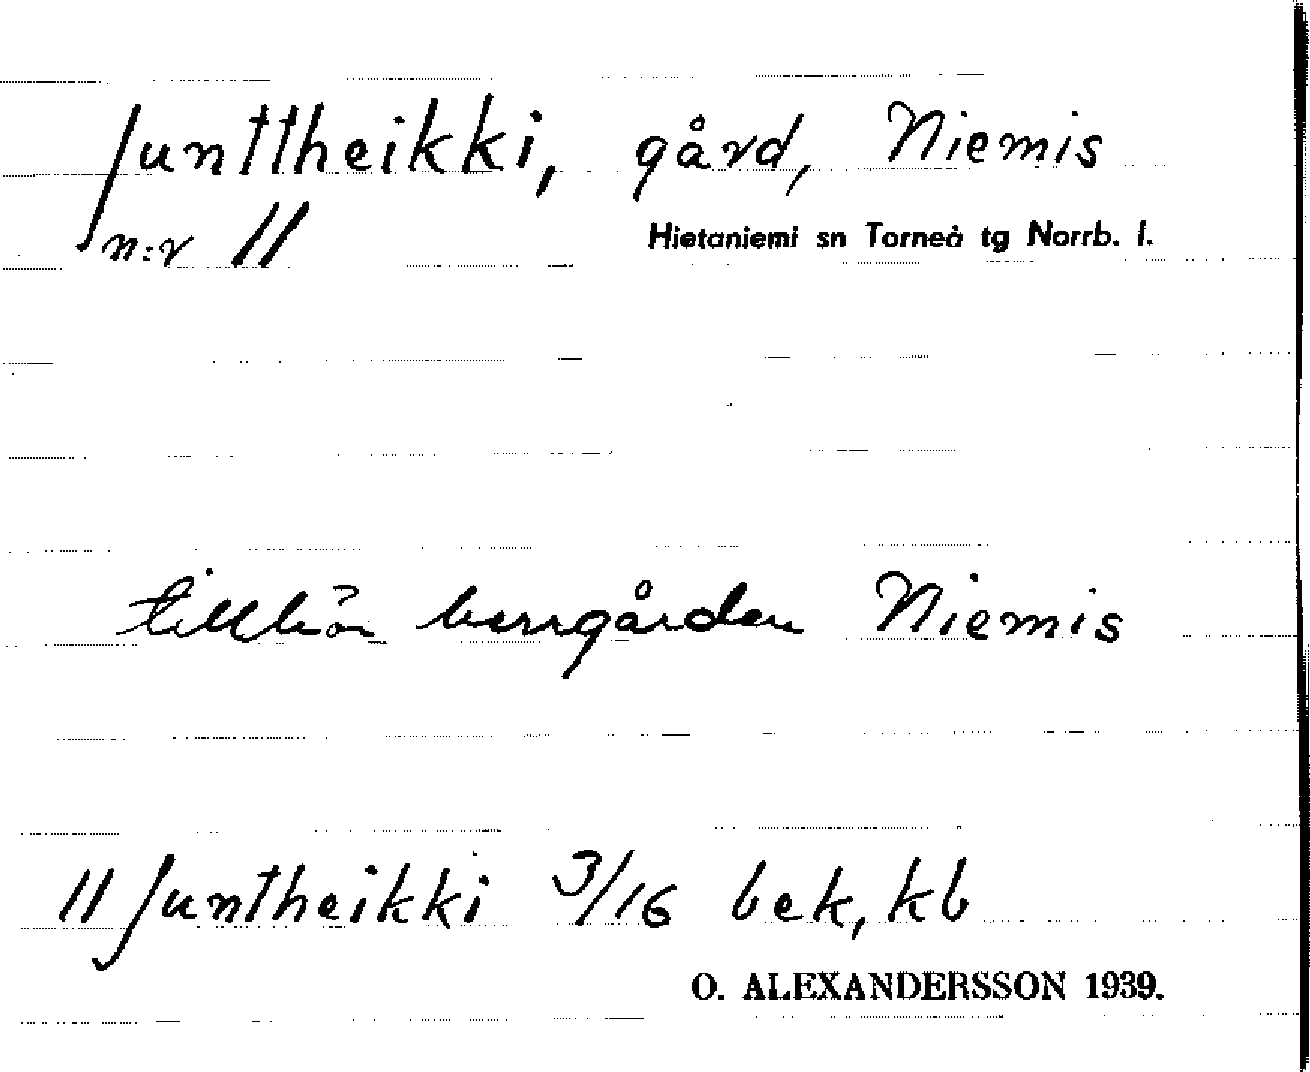 Junttheikki, gård, Niemis
n:r 11 Hietaniemi sn Torneå tg Norrb. l.
tillhör byngården Niemis
11 Juntheikki 3/16 bek, kb
O. ALEXANDERSSON 1939.